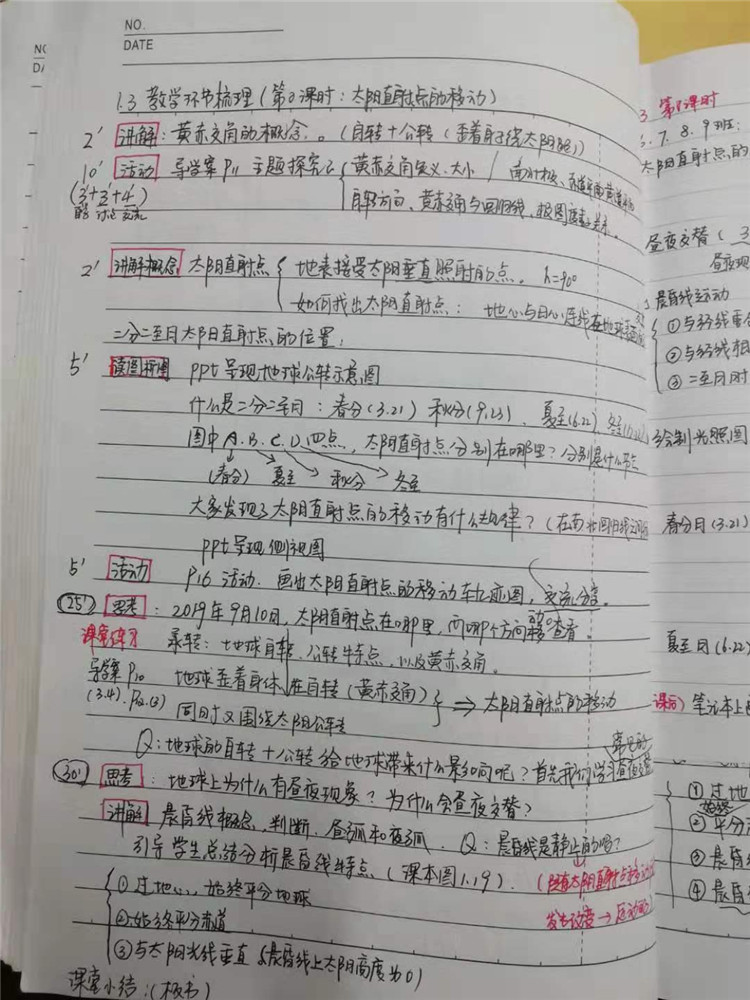 NO.
DATE
1.3 教学环节梳理(第2课时:太阳直射点的移动)
2' 讲解:黄赤交角的概念。(自转+公转(歪着身子绕太阳跑))
10' 活动 导学案P11 主题探究2 黄赤交角定义、大小
(3'+3'+4')
讨论 交流
自转方向、黄赤交角与回归线、极圈度数关系。
2' 讲解概念 太阳直射点 地表接受太阳垂直照射的点。h=90°
如何找出太阳直射点:地心与日心连线在地球表面
二分二至日太阳直射点的位置:
5' 读图析图 ppt呈现地球公转示意图
什么是二分二至日:春分(3.21) 秋分(9.23)、夏至(6.22)、冬至
图中A.B.C.D四点,太阳直射点分别在哪里?分别是什么节气
(春分) 夏至 秋分 冬至
大家发现了太阳直射点的移动有什么规律?(在南北回归线之间
ppt呈现侧视图
5' 活动 P16 活动.画出太阳直射点的移动轨迹图,交流分享。
25' 思考:2019年9月10日,太阳直射点在哪里,向哪个方向移动。查看。
课堂练习 承转:地球自转、公转特点,以及黄赤交角。
导学案P10 地球歪着身体在自转(黄赤交角) ⇒ 太阳直射点的移动
(3.4).P12.(3) 同时又围绕太阳公转
Q:地球的自转+公转给地球带来什么影响呢?首先我们学习昼夜交替
30' 思考:地球上为什么有昼夜现象?为什么会昼夜交替?
讲解 晨昏线概念,判断、昼弧和夜弧、Q:晨昏线是静止的吗?
引导学生总结分析晨昏线特点(课本图1.19).(随着太阳直射点移动
①过地心,始终平分地球
发生改变→运动的
②始终平分赤道
③与太阳光线垂直(晨昏线上太阳高度为0)
课堂小结:(板书)
3 第1课时
6.7.8.9班:
太阳直射点的
昼夜交替(3
昼夜现
晨昏线运动
①与经线重合
②与经线相
③二至日时
绘制光照图
春分日(3.21)
夏至日(6.22)
课后 笔记本上
①过地
始终
②平分
③晨昏
④晨昏